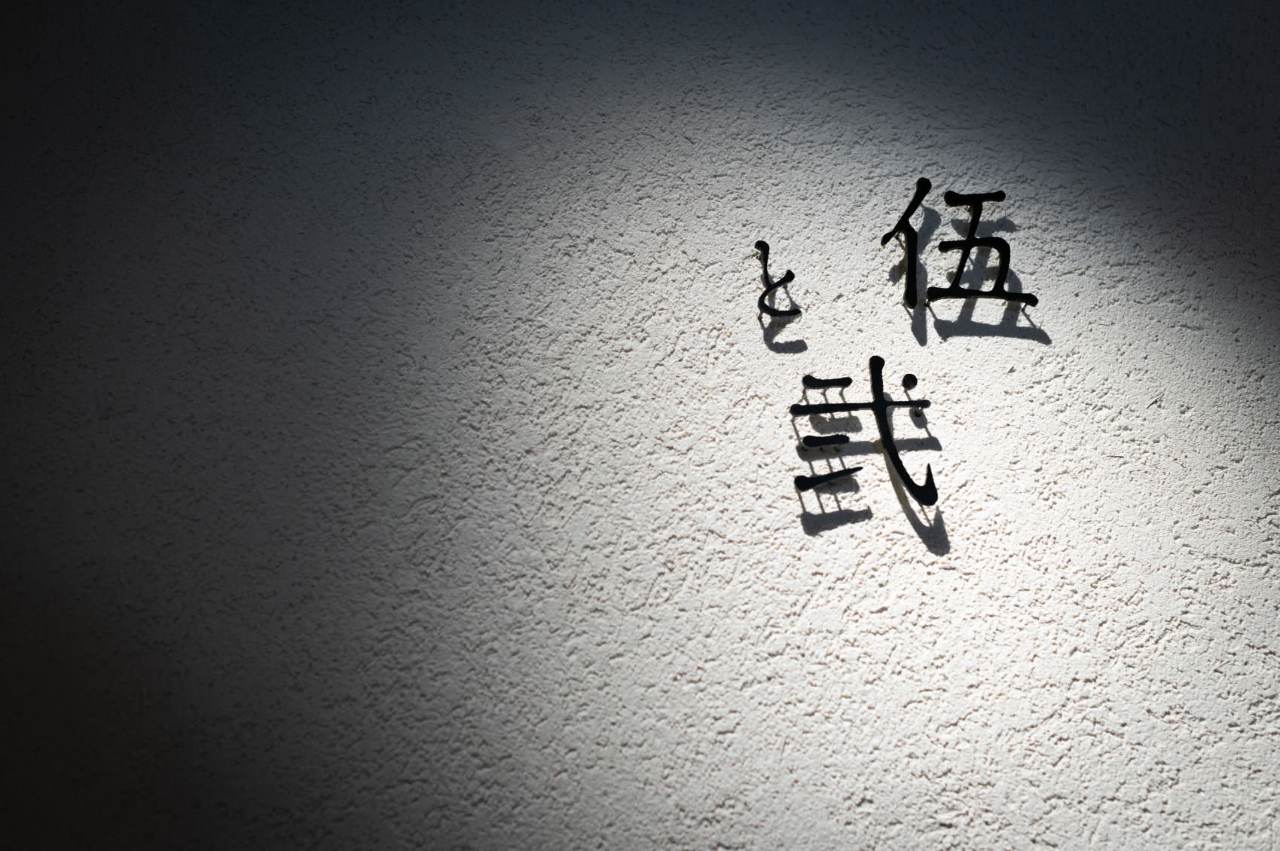 伍
と
弐